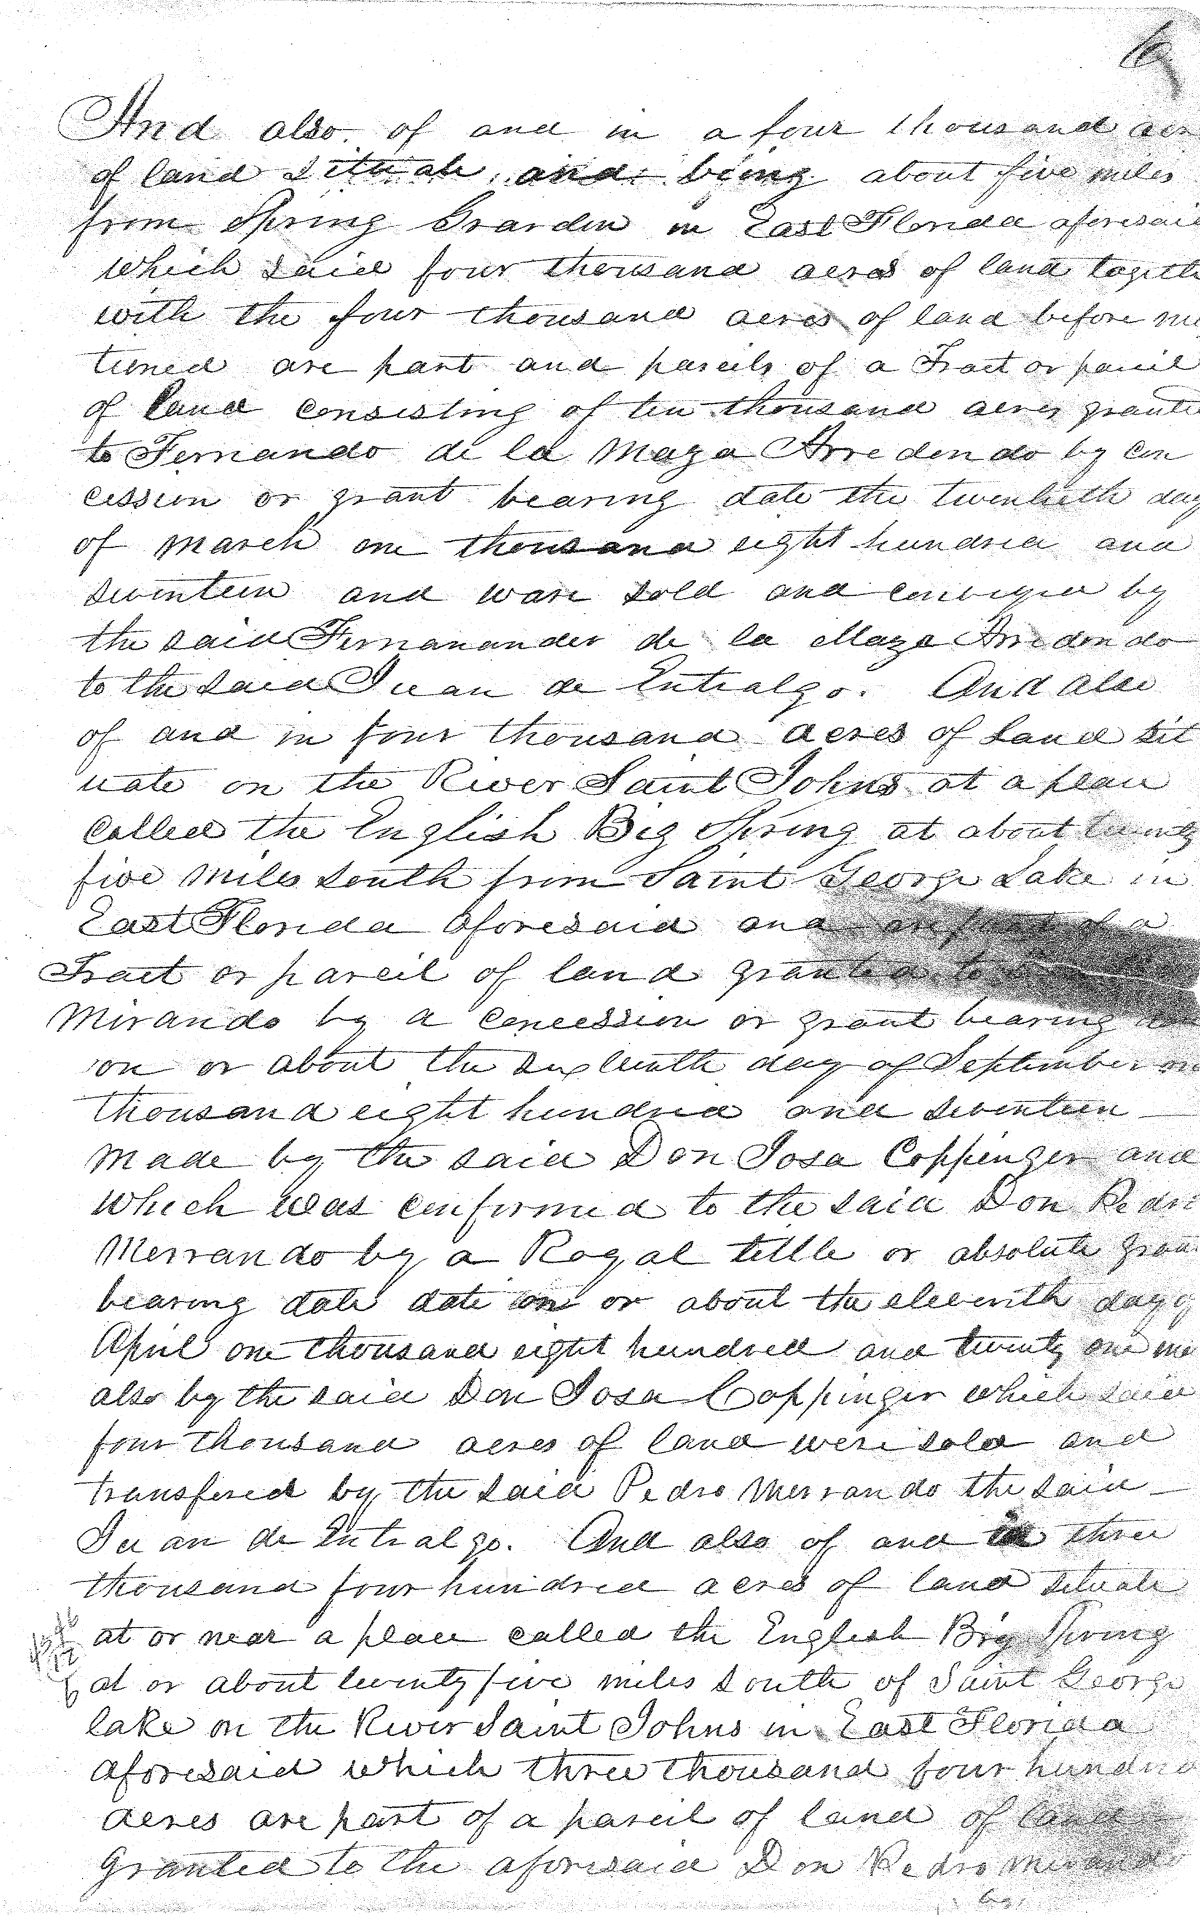 6
And also of and in a four thousand acr
of land situate and being about five miles
from Spring Grarden in East Florida aforesaid
which said four thousand acres of land togeth
with the four thousand acres of land before me
tioned are part and parcils of a Tract or parcil
of land consisting of ten thousand acres grante
to Fernando de la Maza Arredondo by con
cession or grant bearing date the twentieth day
of March one thousand eight hundred and
seventeen and ware sold and conveyed by
the said Fernanander de la Maza Arredondo
to the said Juan de Entralgo. And also
of and in four thousand acres of land sit
uate on the River Saint Johns at a place
called the English Big Spring at about twenty
five miles south from Saint George Lake in
East Florida aforesaid and are part of a
Tract or parcil of land granted to
Mirando by a concession or grant bearing
on or about the sixteenth day of September on
thousand eight hundred and seventeen
made by the said Don Josa Coppinger and
which was confirmed to the said Don Pedro
Merrando by a Royal tittle or absolute gran
bearing date date on or about the eleventh day of
April one thousand eight hundred and twenty one
also by the said Don Josa Coppinger which said
four thousand acres of land were sold and
transfered by the said Pedro Merrando the said
Juan de Entralgo. And also of and in three
thousand four hundred acres of land situate
at or near a place called the English Big Spring
at or about twenty five miles south of Saint George
lake on the River Saint Johns in East Florida
aforesaid which three thousand four hundred
acres are part of a parcil of land of land
Granted to the aforesaid Don Pedro Mirando
by